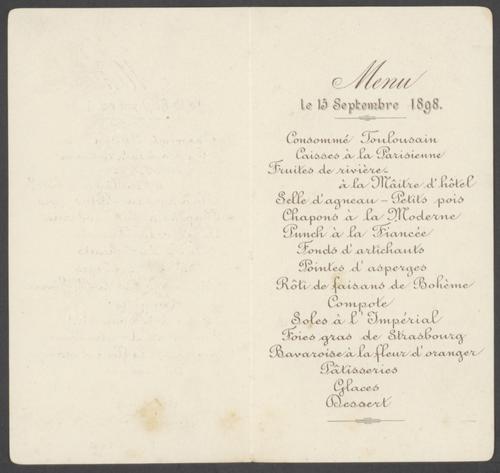 Menu
le 15 Septembre 1898.
Consommé Toulousain
Caisses à la Parisienne
Fruites de rivière
à la Maître d'hôtel
Selle d'agneau – Petits pois
Chapons à la Moderne
Punch à la Fiancée
Fonds d'artichauts
Pointes d'asperges
Rôti de faisans de Bohème
Compote
Soles à l'Impérial
Foies gras de Strasbourg
Bavaroise à la fleur d'oranger
Pâtisseries
Glaces
Dessert